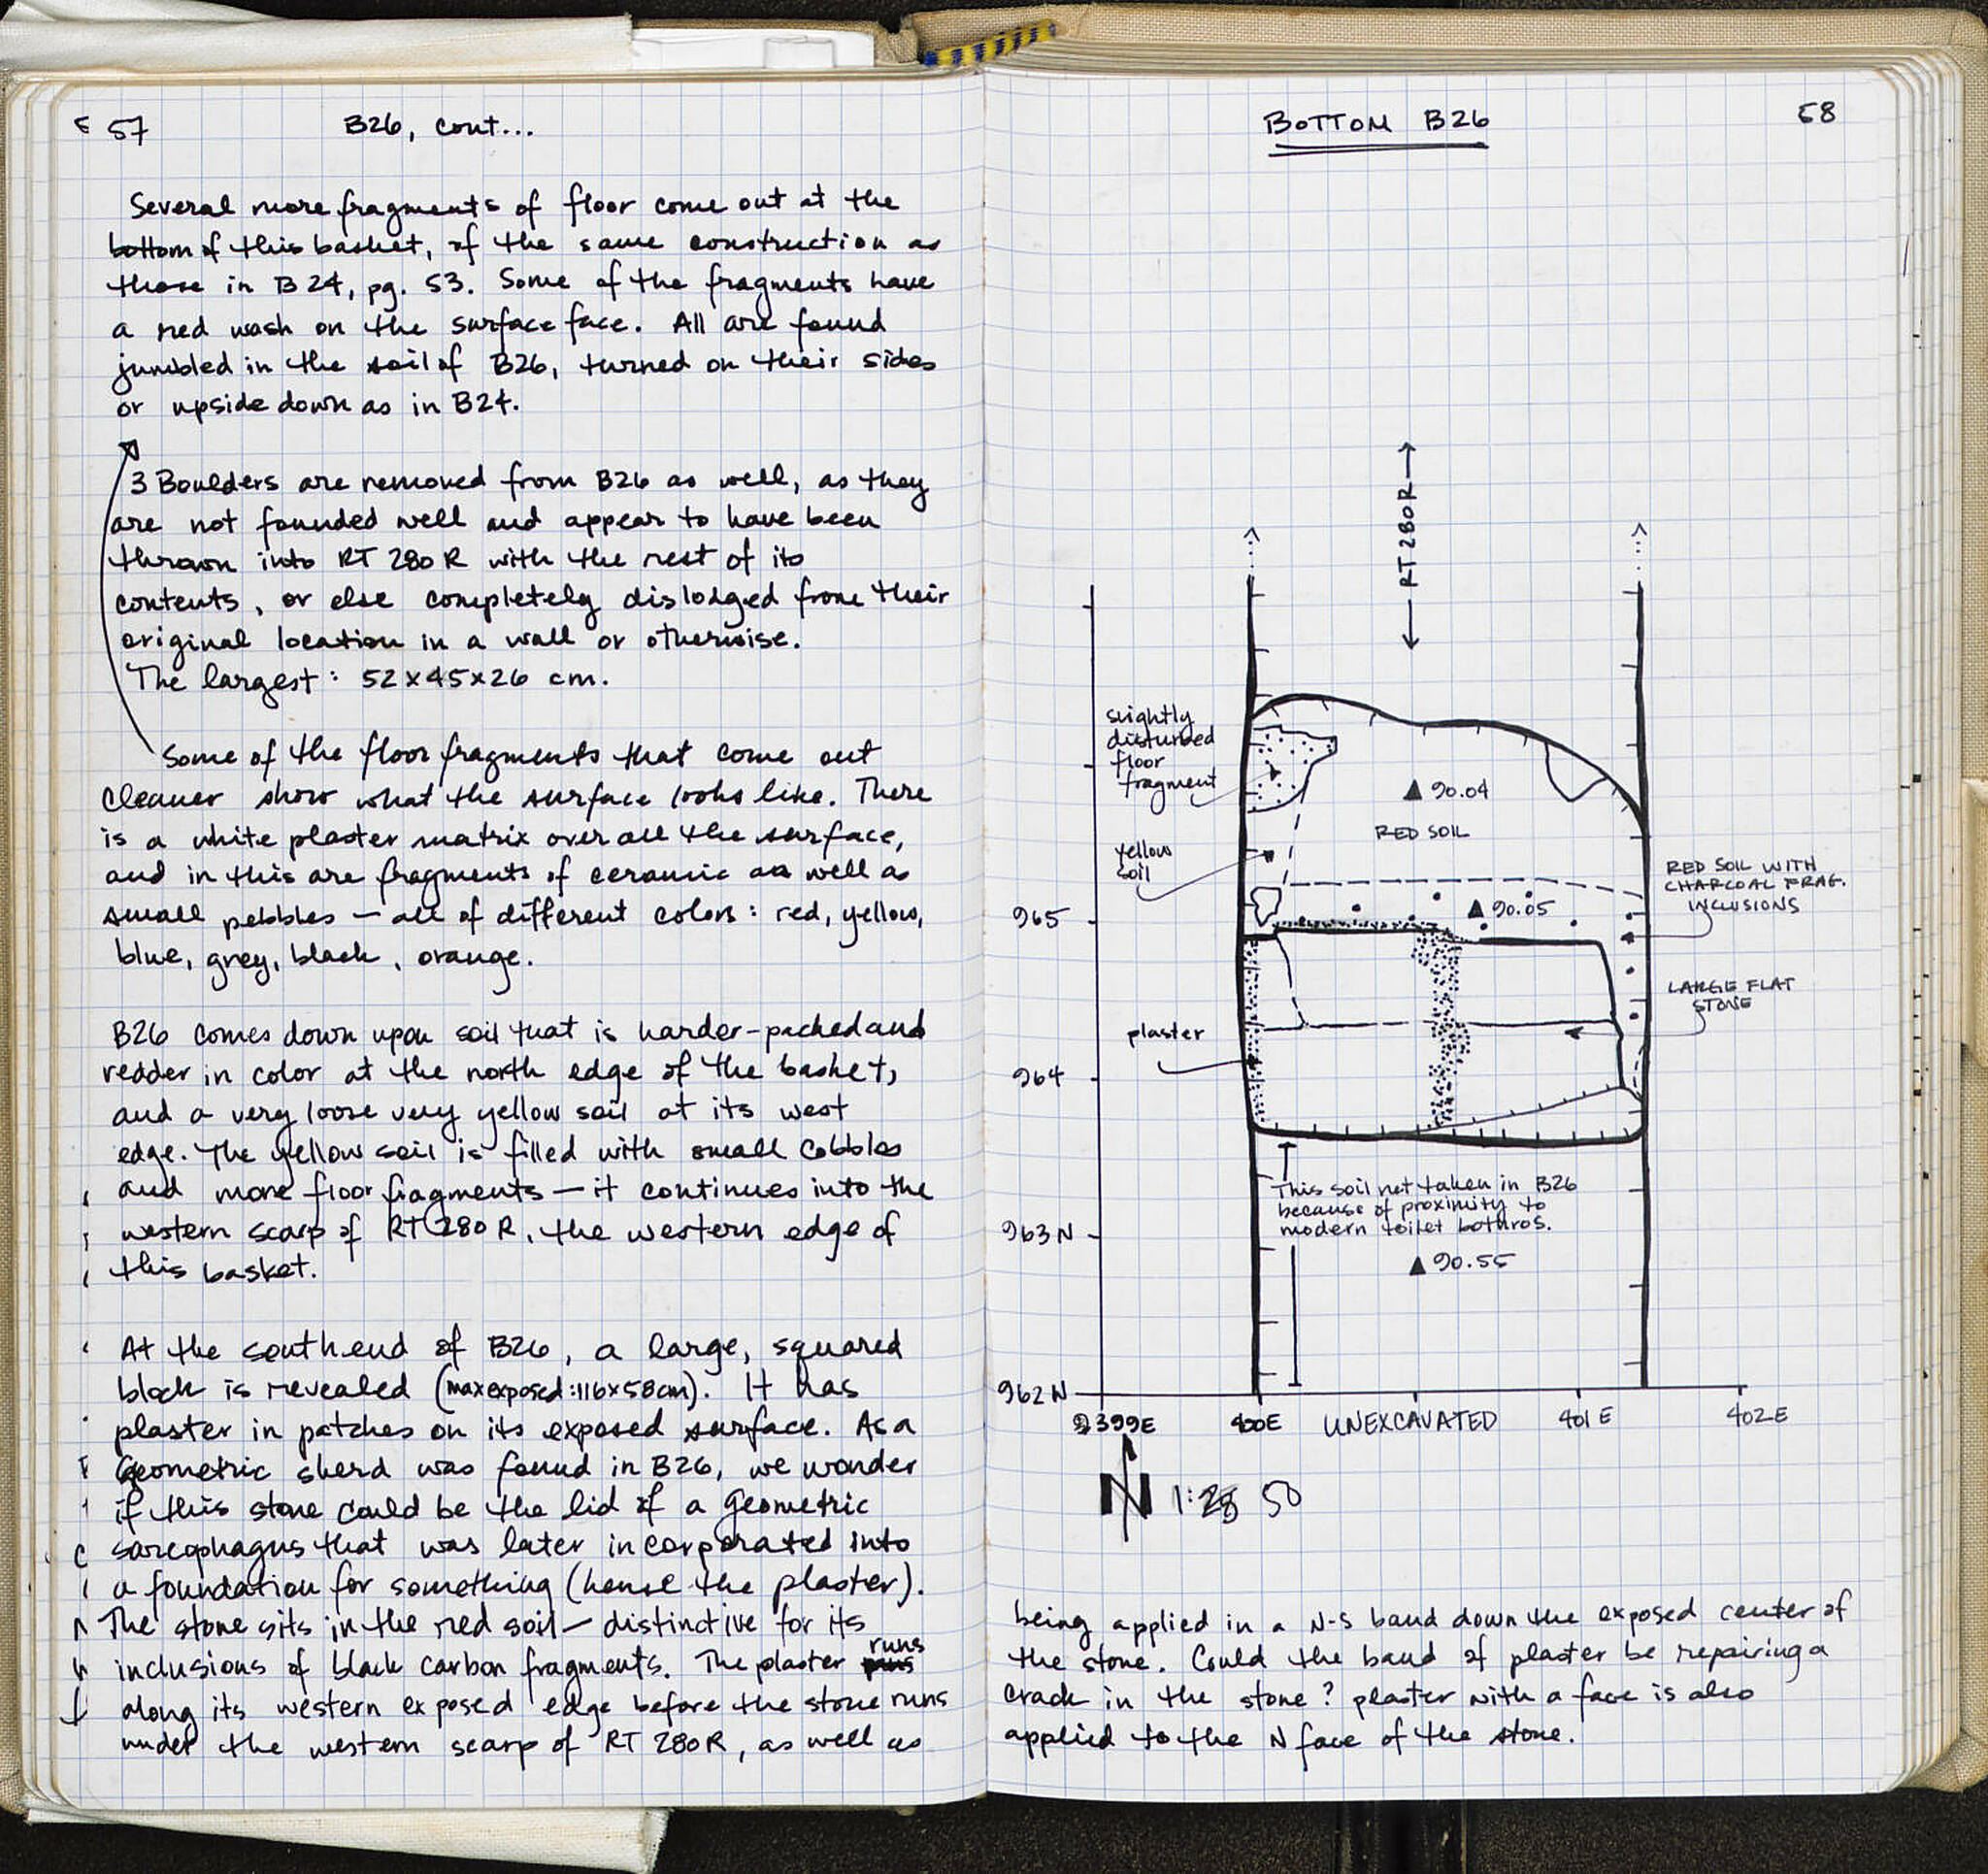 57
B26, cont...
Several more fragments of floor come out at the
bottom of this basket, of the same construction as
those in B24, pg. 53. Some of the fragments have
a red wash on the surface face. All are found
jumbled in the soil of B26, turned on their sides
or upside down as in B24.
3 Boulders are removed from B26 as well, as they
are not founded well and appear to have been
thrown into RT 280R with the rest of its
contents, or else completely dislodged from their
original location in a wall or otherwise.
The largest: 52x45x26 cm.
Some of the floor fragments that come out
cleaner show what the surface looks like. There
is a white plaster matrix over all the surface,
and in this are fragments of ceramic as well as
small pebbles — all of different colors: red, yellow,
blue, grey, black, orange.
B26 comes down upon soil that is harder-packed and
redder in color at the north edge of the basket,
and a very loose very yellow soil at its west
edge. The yellow soil is filled with small cobbles
and more floor fragments — it continues into the
western scarp of RT 280R, the western edge of
this basket.
At the south end of B26, a large, squared
block is revealed (max exposed: 116x58cm). It has
plaster in patches on its exposed surface. As a
Geometric sherd was found in B26, we wonder
if this stone could be the lid of a Geometric
sarcophagus that was later incorporated into
a foundation for something (hence the plaster).
The stone sits in the red soil — distinctive for its
inclusions of black carbon fragments. The plaster runs
along its western exposed edge before the stone runs
under the western scarp of RT 280R, as well as
BOTTOM B26
58
RT 280R
slightly
disturbed
floor
fragment
▲ 90.04
RED SOIL
yellow
soil
RED SOIL WITH
CHARCOAL FRAG.
INCLUSIONS
965
▲ 90.05
LARGE FLAT
STONE
plaster
964
This soil not taken in B26
because of proximity to
modern toilet bothros.
963 N
▲ 90.55
962 N
399E
400E
UNEXCAVATED
401 E
402 E
N
1:25 50
being applied in a N-S band down the exposed center of
the stone. Could the band of plaster be repairing a
crack in the stone? plaster with a face is also
applied to the N face of the stone.